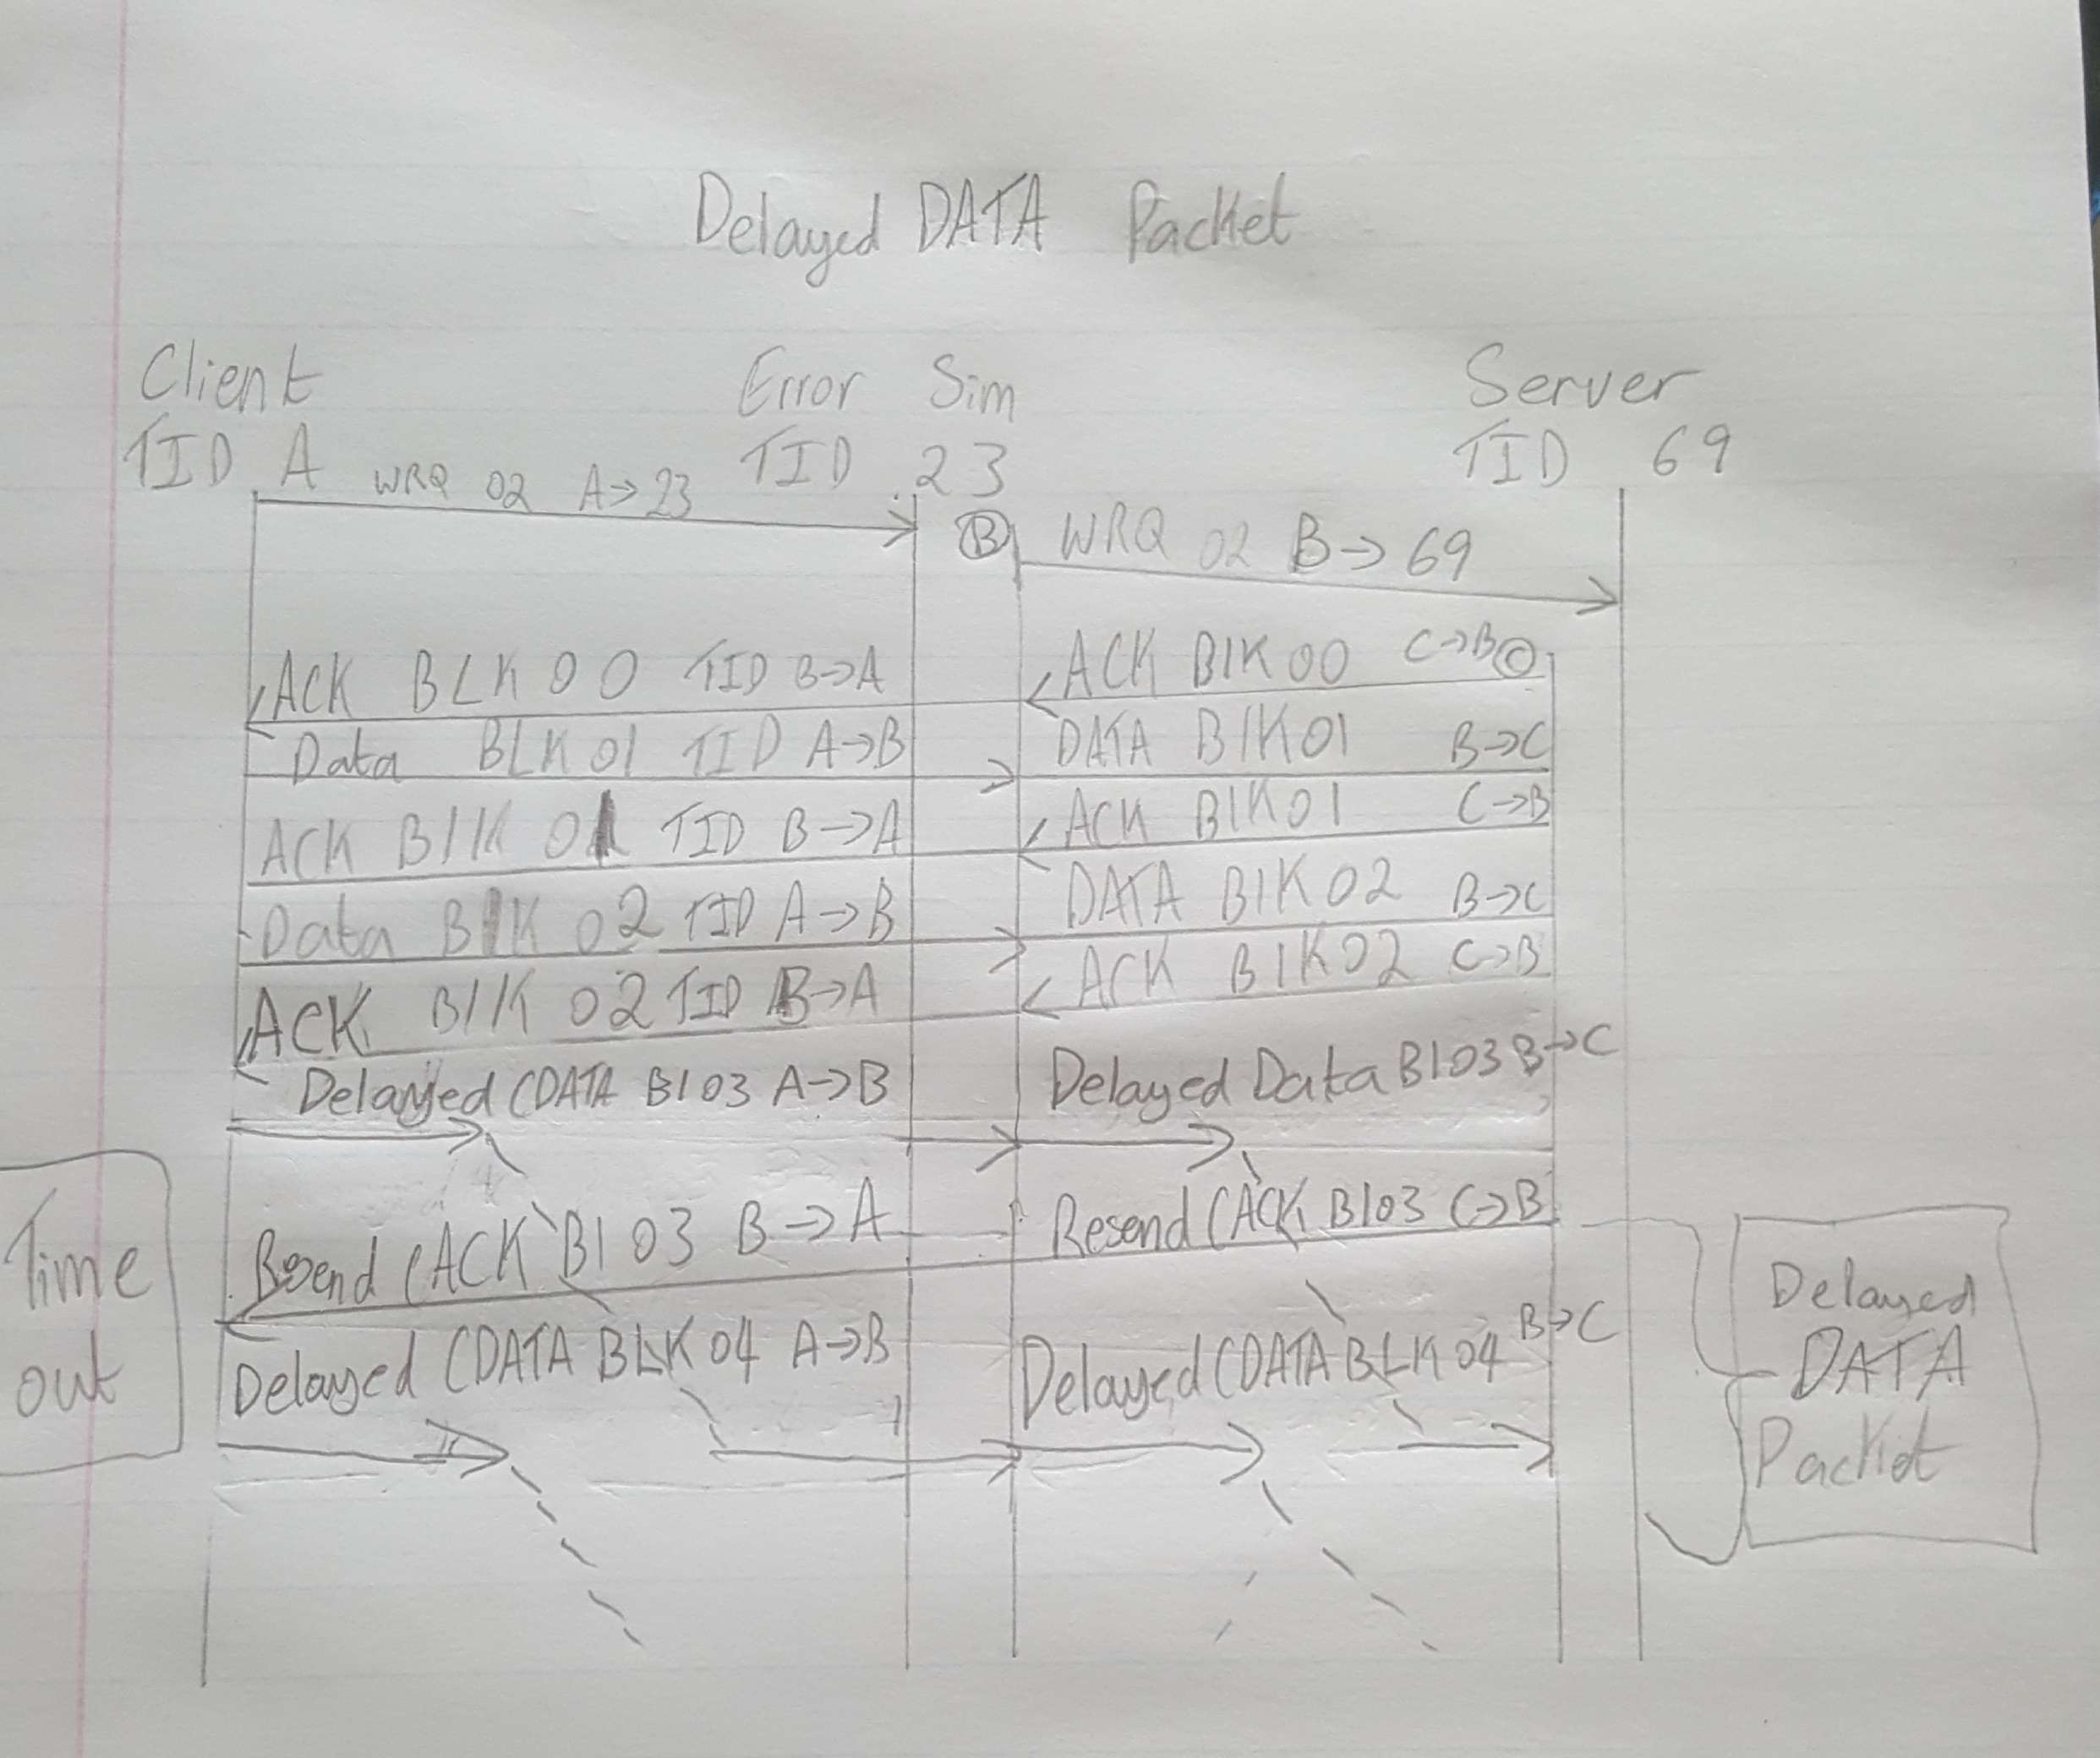 Delayed DATA Packet
Client Error Sim Server
TID A TID 23 TID 69
WRQ 02 A→23
B WRQ 02 B→69
ACK BLK 00 TID B→A ACK BlK 00 C→B C
Data BLK 01 TID A→B DATA BlK 01 B→C
ACK BlK 01 TID B→A ACK BlK 01 C→B
Data BlK 02 TID A→B DATA BlK 02 B→C
ACK BlK 02 TID B→A ACK BlK 02 C→B
Delayed (DATA Bl 03 A→B Delayed Data Bl 03 B→C
Resend (ACK Bl 03 B→A Resend (ACK Bl 03 C→B
Delayed (DATA BLK 04 A→B Delayed (DATA BLK 04 B→C
Time
out
Delayed
DATA
Packet